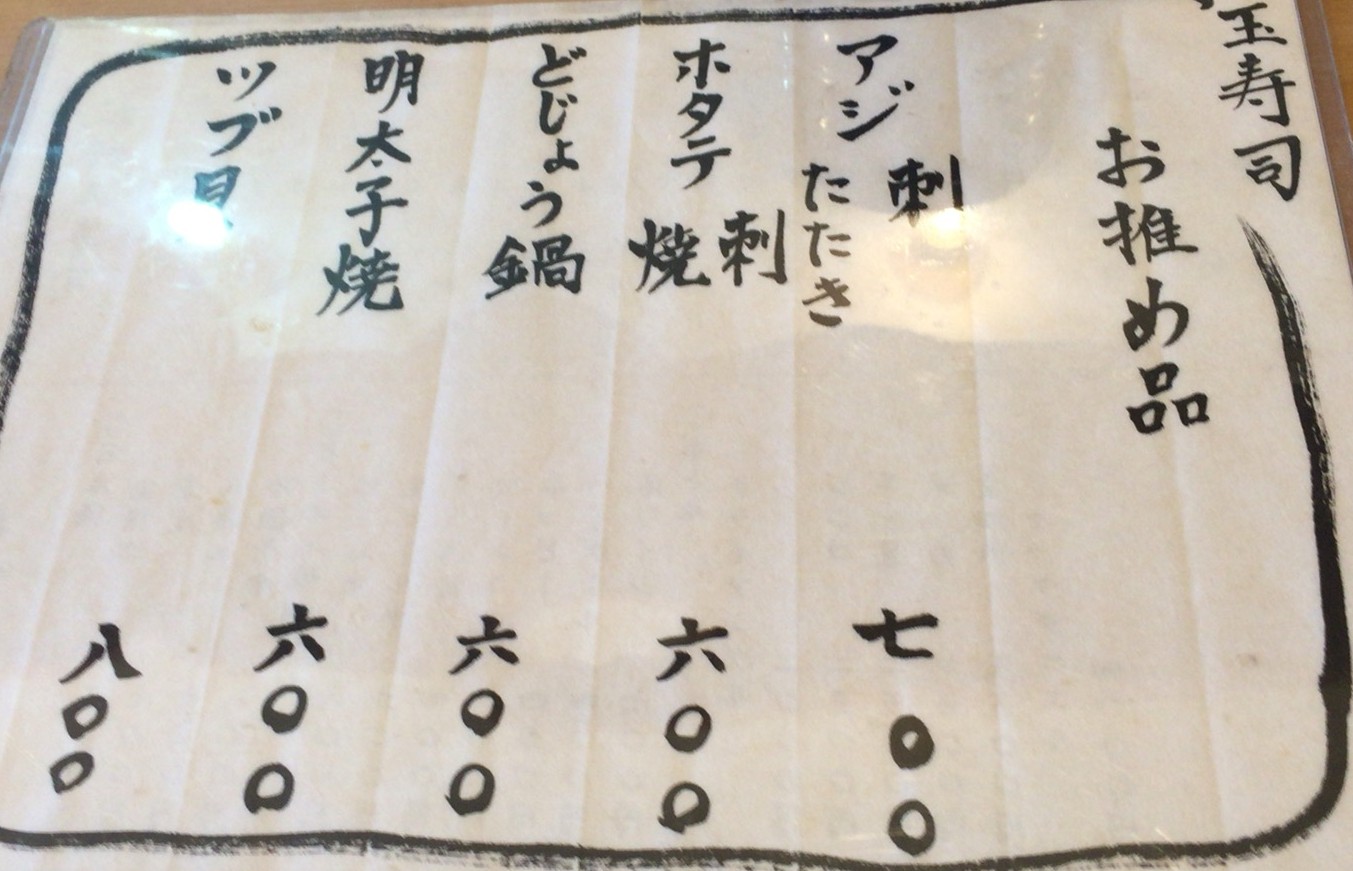 玉寿司
お推め品
アジ 刺 たたき 七〇〇
ホタテ 刺 焼 六〇〇
どじょう鍋 六〇〇
明太子焼 六〇〇
ツブ貝 八〇〇